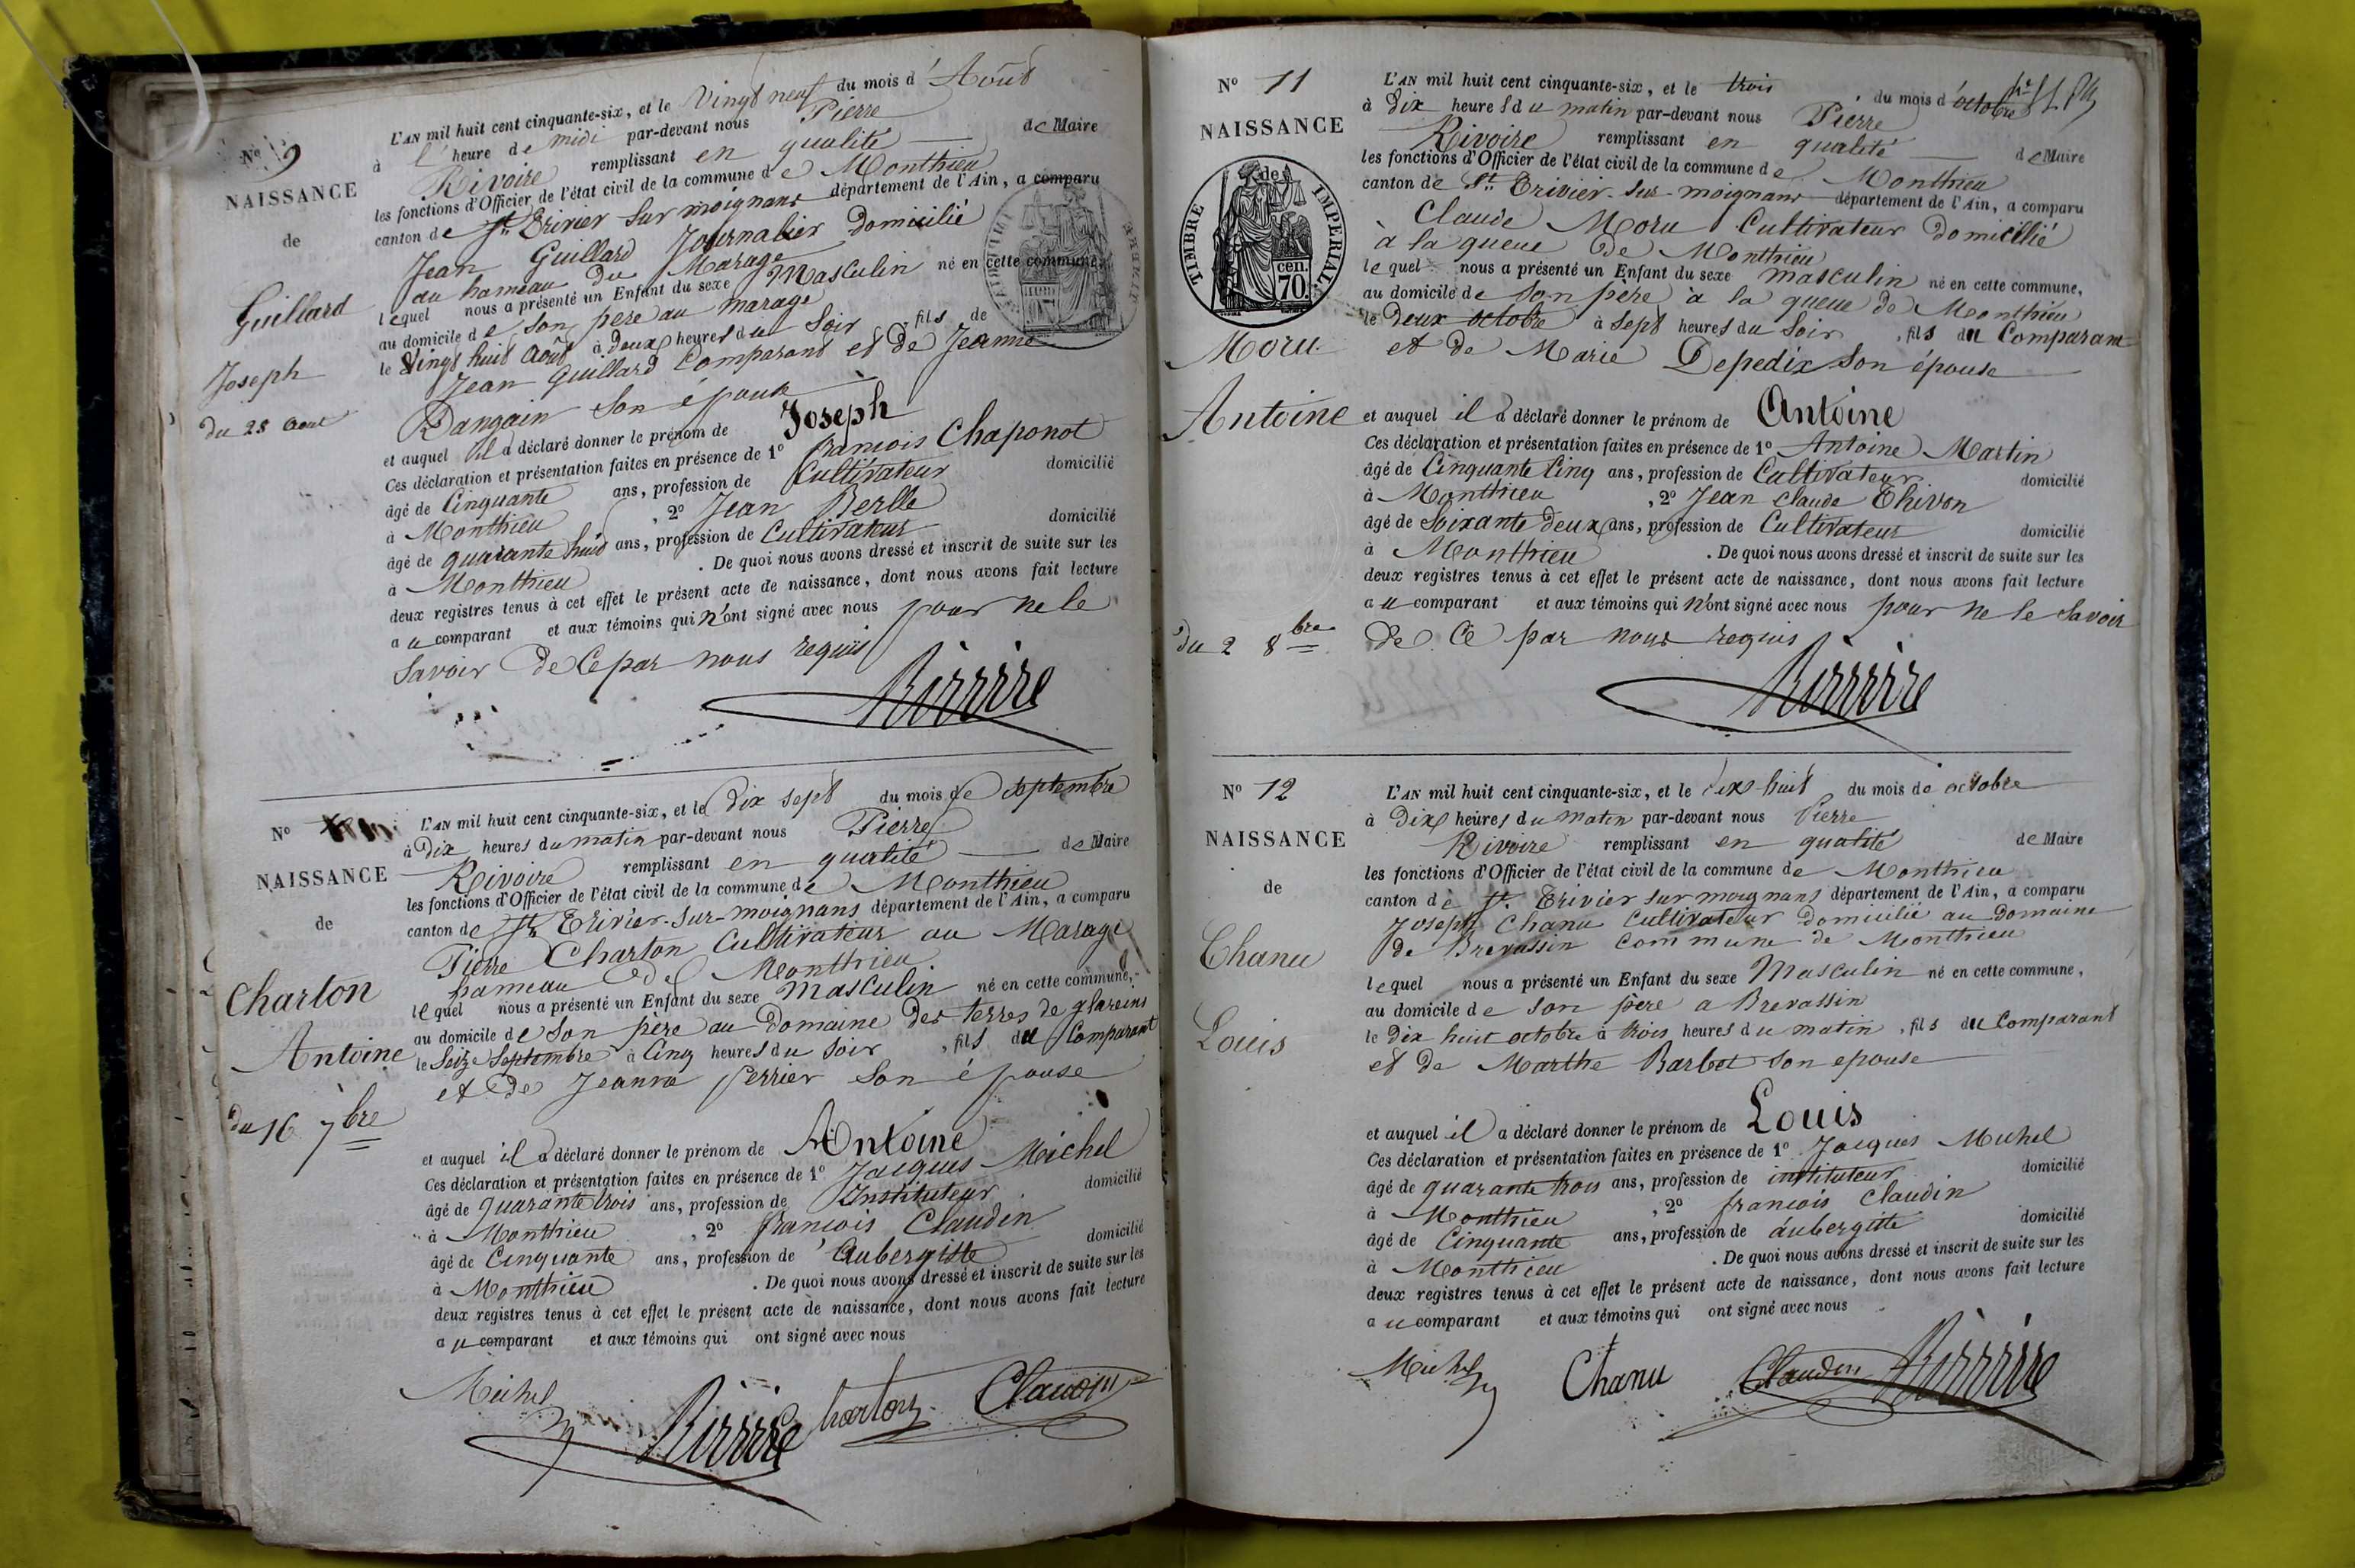 Nº 9
NAISSANCE
de
Guillard
Joseph
du 28 aout
L'AN mil huit cent cinquante-six, et le Vingt neuf du mois d'Août
à l'heure de midi par-devant nous Pierre
Rivoire remplissant en qualité de Maire
les fonctions d'Officier de l'état civil de la commune de Monthieu
canton de St Trivier sur moignans département de l'Ain, a comparu
Jean Guillard Journalier Domicilié
au hameau du Marage
lequel nous a présenté un Enfant du sexe Masculin né en cette commune,
au domicile de son père au marage
le Vingt huit Août à deux heures du Soir, fils de
Jean Guillard Comparant et de Jeanne
Dangain son épouse
et auquel il a déclaré donner le prénom de Joseph
Ces déclaration et présentation faites en présence de 1º francois Chaponot
âgé de Cinquante ans, profession de Cultivateur domicilié
à Monthieu, 2º Jean Berlle
âgé de quarante huit ans, profession de Cultivateur domicilié
à Monthieu. De quoi nous avons dressé et inscrit de suite sur les
deux registres tenus à cet effet le présent acte de naissance, dont nous avons fait lecture
au comparant et aux témoins qui n'ont signé avec nous pour ne le
Savoir De Ce par nous requis
Rivoire
Nº
NAISSANCE
de
Charton
Antoine
du 16 7bre
L'AN mil huit cent cinquante-six, et le Dix sept du mois de Septembre
à Dix heures du matin par-devant nous Pierre
Rivoire remplissant en qualité de Maire
les fonctions d'Officier de l'état civil de la commune de Monthieu
canton de St Trivier-sur-moignans département de l'Ain, a comparu
Pierre Charton Cultivateur au Marage
hameau de Monthieu
lequel nous a présenté un Enfant du sexe Masculin né en cette commune,
au domicile de son père au Domaine des terres de glareins
le Seize Septembre à Cinq heures du Soir, fils du Comparant
et de Jeanne Perrier Son épouse
et auquel il a déclaré donner le prénom de Antoine
Ces déclaration et présentation faites en présence de 1º Jacques Michel
âgé de quarante trois ans, profession de Instituteur domicilié
à Monthieu, 2º francois Claudin
âgé de Cinquante ans, profession de Aubergiste domicilié
à Monthieu. De quoi nous avons dressé et inscrit de suite sur les
deux registres tenus à cet effet le présent acte de naissance, dont nous avons fait lecture
au comparant et aux témoins qui ont signé avec nous
Michel Rivoire Charton Claudin
Nº 11
NAISSANCE
de
TIMBRE IMPERIAL
cen. 70.
Moru
Antoine
du 2 8bre
L'AN mil huit cent cinquante-six, et le trois du mois d'octobre
à Dix heures du matin par-devant nous Pierre
Rivoire remplissant en qualité de Maire
les fonctions d'Officier de l'état civil de la commune de Monthieu
canton de St Trivier-sur-moignans département de l'Ain, a comparu
Claude Moru Cultivateur Domicilié
à la queue De Monthieu
lequel nous a présenté un Enfant du sexe masculin né en cette commune,
au domicile de son père à la queue de Monthieu
le Deux octobre à Sept heures du Soir, fils du Comparant
et de Marie Depedix son épouse
et auquel il a déclaré donner le prénom de Antoine
Ces déclaration et présentation faites en présence de 1º Antoine Martin
âgé de Cinquante Cinq ans, profession de Cultivateur domicilié
à Monthieu, 2º Jean Claude Thivon
âgé de Soixante Deux ans, profession de Cultivateur domicilié
à Monthieu. De quoi nous avons dressé et inscrit de suite sur les
deux registres tenus à cet effet le présent acte de naissance, dont nous avons fait lecture
au comparant et aux témoins qui n'ont signé avec nous pour ne le Savoir
De Ce par nous requis
Rivoire
Nº 12
NAISSANCE
de
Chanu
Louis
L'AN mil huit cent cinquante-six, et le dix huit du mois de octobre
à Dix heures du matin par-devant nous Pierre
Rivoire remplissant en qualité de Maire
les fonctions d'Officier de l'état civil de la commune de Monthieu
canton de St Trivier sur moignans département de l'Ain, a comparu
Joseph Chanu Cultivateur Domicilié au Domaine
de Brevassin Commune de Monthieu
lequel nous a présenté un Enfant du sexe Masculin né en cette commune,
au domicile de son père a Brevassin
le Dix huit octobre à trois heures du matin, fils du Comparant
et de Marthe Barbet son epouse
et auquel il a déclaré donner le prénom de Louis
Ces déclaration et présentation faites en présence de 1º Jacques Michel
âgé de quarante trois ans, profession de instituteur domicilié
à Monthieu, 2º francois Claudin
âgé de Cinquante ans, profession de aubergiste domicilié
à Monthieu. De quoi nous avons dressé et inscrit de suite sur les
deux registres tenus à cet effet le présent acte de naissance, dont nous avons fait lecture
au comparant et aux témoins qui ont signé avec nous
Michel Chanu Claudin Rivoire